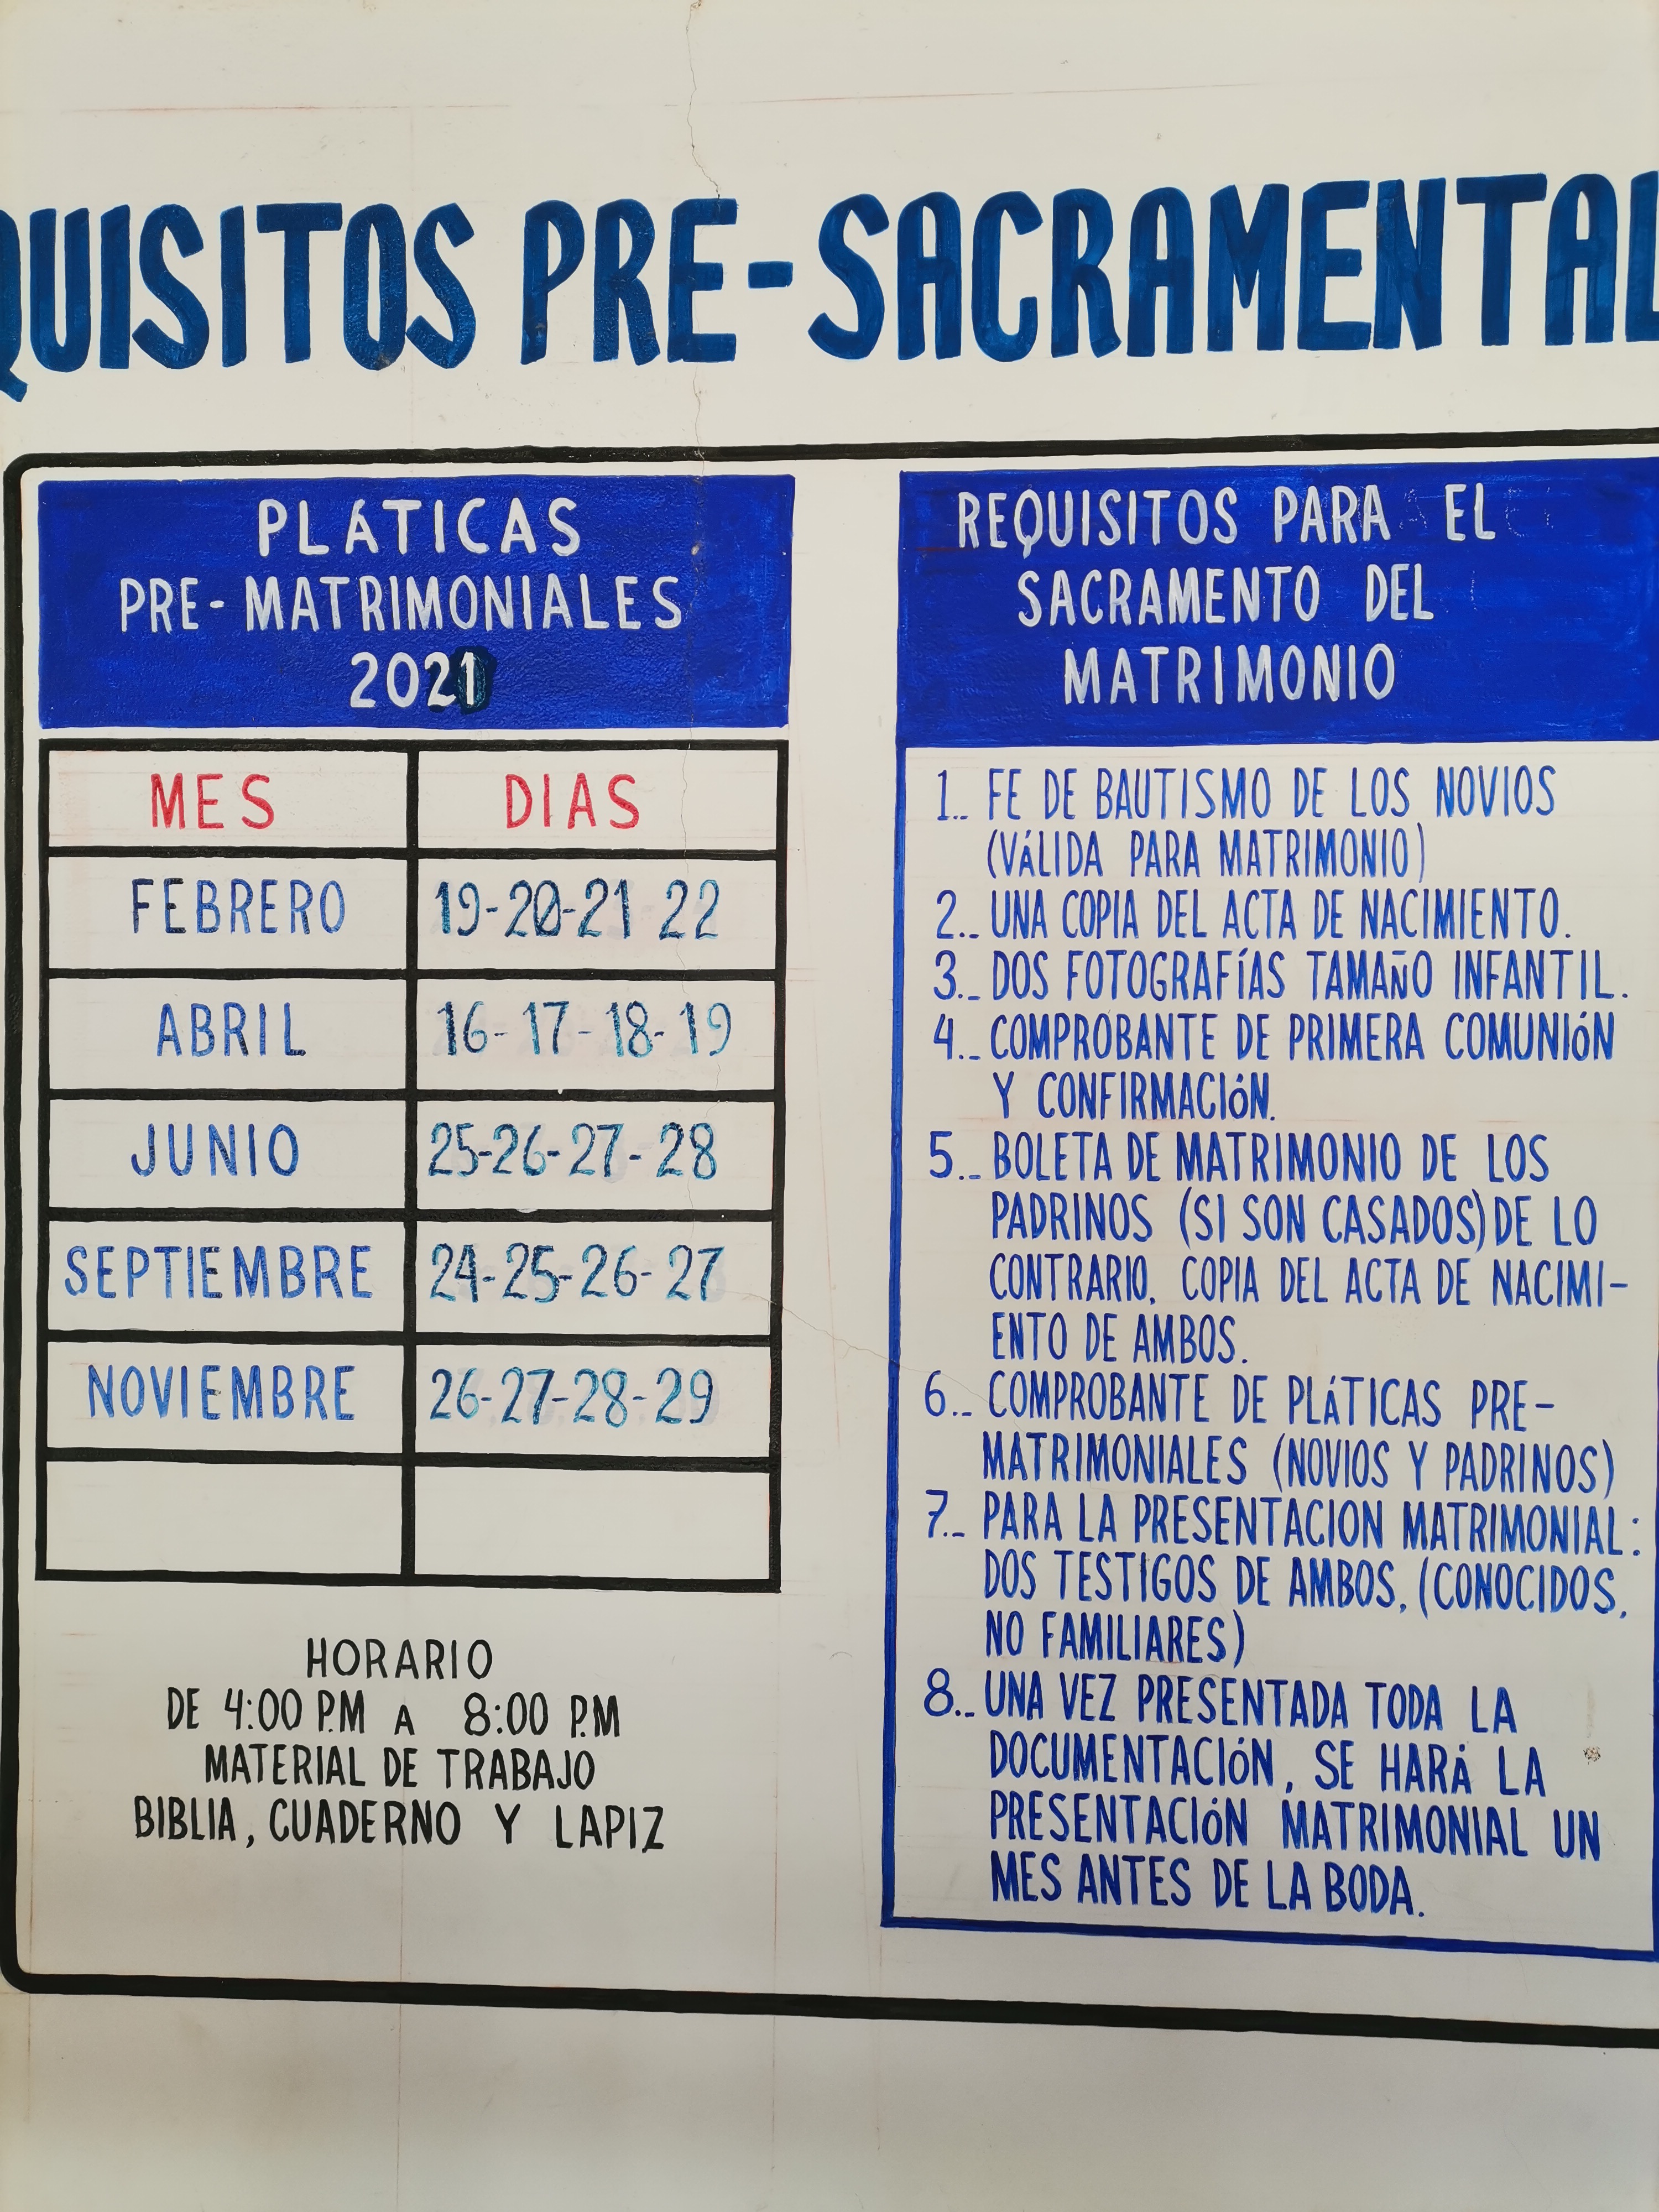 QUISITOS PRE-SACRAMENTAL
PLÁTICAS
PRE-MATRIMONIALES
2021
MES DIAS
FEBRERO 19-20-21 22
ABRIL 16-17-18-19
JUNIO 25-26-27-28
SEPTIEMBRE 24-25-26-27
NOVIEMBRE 26-27-28-29
HORARIO
DE 4:00 P.M A 8:00 P.M
MATERIAL DE TRABAJO
BIBLIA, CUADERNO Y LAPIZ
REQUISITOS PARA EL
SACRAMENTO DEL
MATRIMONIO
1.. FE DE BAUTISMO DE LOS NOVIOS
(VÁLIDA PARA MATRIMONIO)
2.. UNA COPIA DEL ACTA DE NACIMIENTO.
3.. DOS FOTOGRAFÍAS TAMAÑO INFANTIL.
4.. COMPROBANTE DE PRIMERA COMUNIÓN
Y CONFIRMACIÓN.
5.. BOLETA DE MATRIMONIO DE LOS
PADRINOS (SI SON CASADOS) DE LO
CONTRARIO, COPIA DEL ACTA DE NACIMI-
ENTO DE AMBOS.
6.. COMPROBANTE DE PLÁTICAS PRE-
MATRIMONIALES (NOVIOS Y PADRINOS)
7.- PARA LA PRESENTACION MATRIMONIAL:
DOS TESTIGOS DE AMBOS, (CONOCIDOS,
NO FAMILIARES)
8.. UNA VEZ PRESENTADA TODA LA
DOCUMENTACIÓN, SE HARÁ LA
PRESENTACIÓN MATRIMONIAL UN
MES ANTES DE LA BODA.